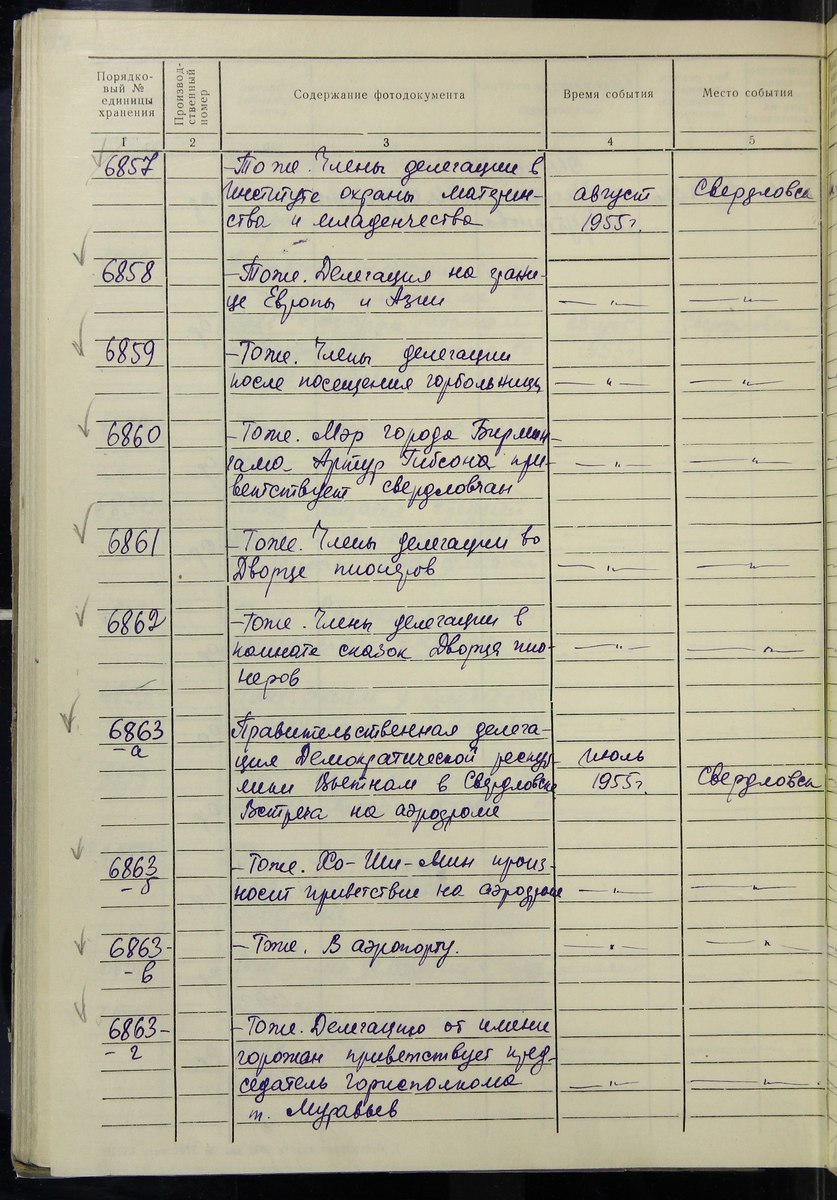 Порядко-
вый №
единицы
хранения
Производ-
ственный
номер
Содержание фотодокумента
Время события
Место события
1
2
3
4
5
6857
– То же. Члены делегации в
Институте охраны материн-
ства и младенчества
август
1955г.
Свердловск
6858
– То же. Делегация на грани-
це Европы и Азии
— " —
— " —
6859
– То же. Члены делегации
после посещения горбольницы
— " —
— " —
6860
– То же. Мэр города Бирмин-
гама Артур Гибсона при-
ветствует свердловчан
— " —
— " —
6861
– То же. Члены делегации во
Дворце пионеров
— " —
— " —
6862
– То же. Члены делегации в
комнате сказок Дворца пио-
неров
— " —
— " —
6863
-а
Правительственная делега-
ция Демократической респуб-
лики Вьетнам в Свердловске
Встреча на аэродроме
июль
1955г.
Свердловск
6863
-б
– То же. Хо-Ши-Мин произ-
носит приветствие на аэродроме
— " —
— " —
6863-
-в
– Тоже. В аэропорту.
— " —
— " —
6863-
-г
– То же. Делегацию от имени
горожан приветствует пред-
седатель горисполкома
т. Муравьев
— " —
— " —